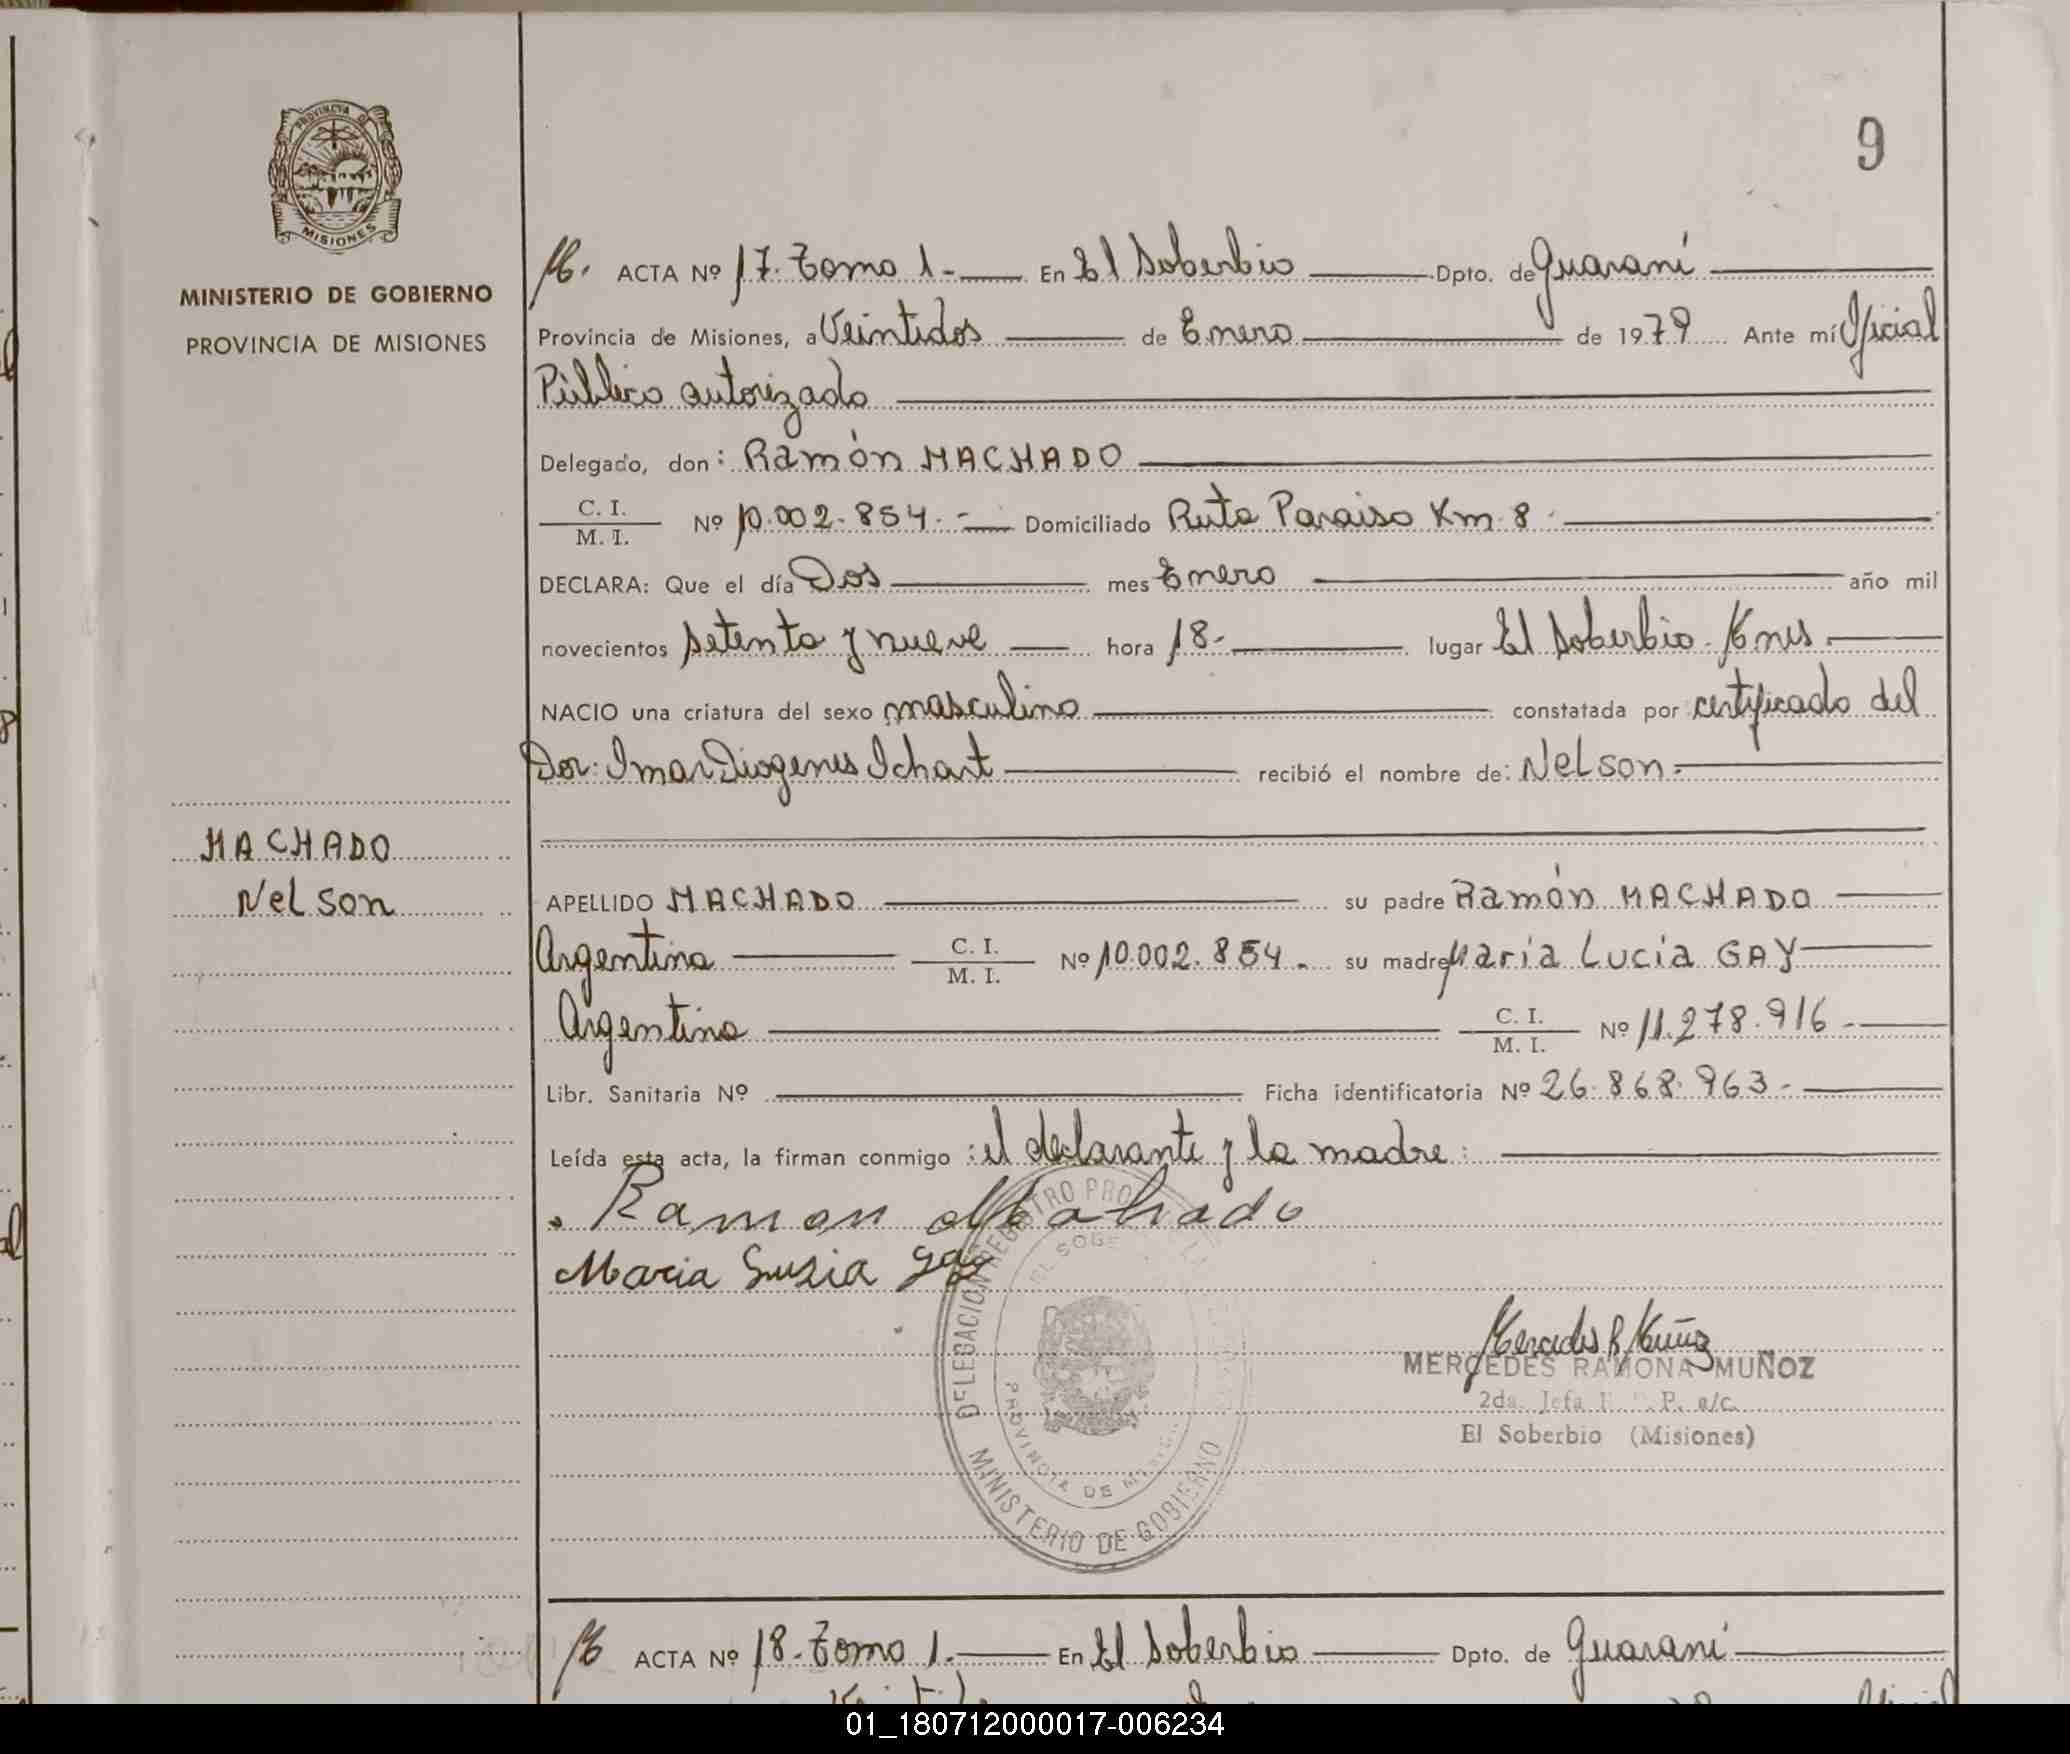 PROVINCIA DE
MISIONES
MINISTERIO DE GOBIERNO
PROVINCIA DE MISIONES
9
M. ACTA Nº 17. Tomo 1.- En El Soberbio Dpto. de Guaraní
Provincia de Misiones, a Veintidos de Enero de 1979 Ante mí Oficial
Público autorizado
Delegado, don: Ramón MACHADO
C. I.
M. I.
Nº 10.002.854.- Domiciliado Ruta Paraiso Km 8
DECLARA: Que el día Dos mes Enero año mil
novecientos setenta y nueve hora 18.- lugar El Soberbio. Mnes.
NACIO una criatura del sexo masculino constatada por certificado del
Dor: Imar Diogenes Ichart recibió el nombre de: Nelson.-
MACHADO
Nelson
APELLIDO MACHADO su padre Ramón MACHADO
Argentina C. I.
M. I. Nº 10.002.854. su madre Maria Lucia GAY
Argentina C. I.
M. I. Nº 11.278.916.-
Libr. Sanitaria Nº Ficha identificatoria Nº 26.868.963.-
Leída esta acta, la firman conmigo: el declarante y la madre:
Ramon Machado
Maria Luzia Gay
DELEGACION REGISTRO PRO
EL SOBE
PROVINCIA DE MISIO
MINISTERIO DE GOBIERNO
Mercedes R Muñoz
MERCEDES RAMONA MUÑOZ
2da. Jefa P. a/c.
El Soberbio (Misiones)
M ACTA Nº 18. Tomo 1.- En El Soberbio Dpto. de Guaraní
01_180712000017-006234